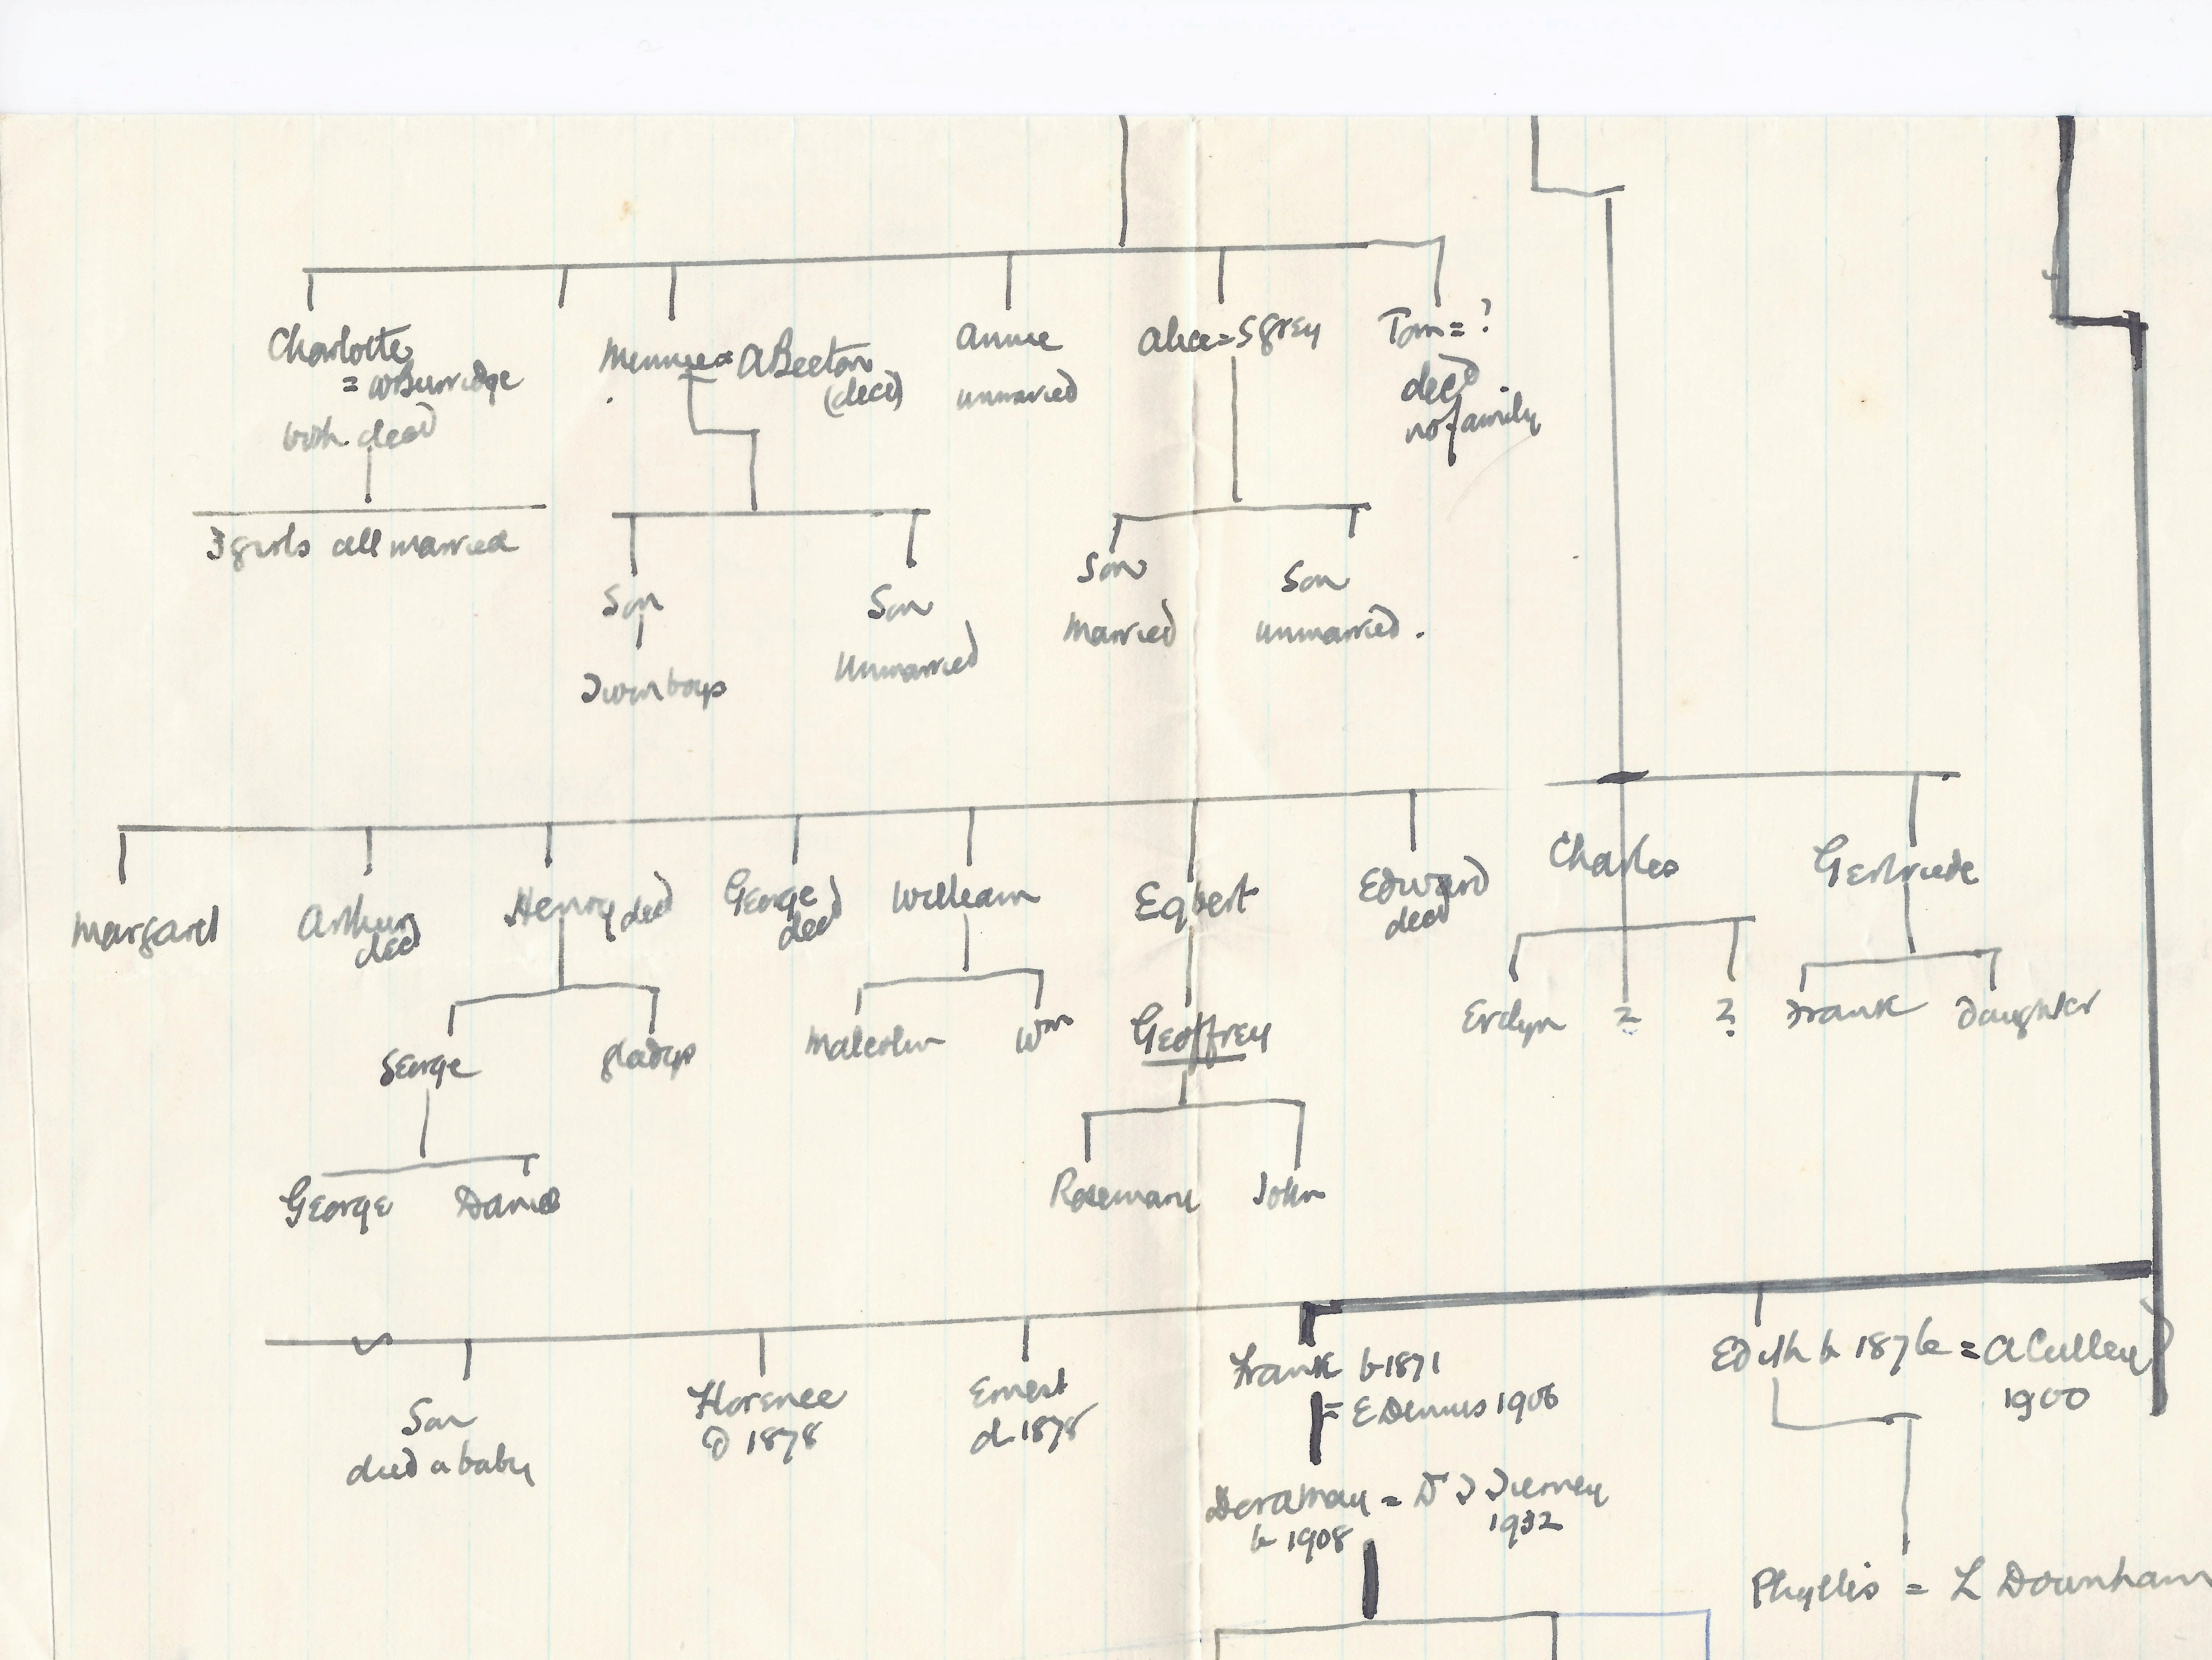 Charlotte
= W Burridge
both decd
3 girls all married
Minnie = A Beeton
(decd)
Annie
unmarried
Alice = S Grey
Tom = ?
decd
no family
Son
Twin boys
Son
Unmarried
Son
Married
Son
unmarried.
Margaret
Arthur
decd
Henry decd
George
decd
William
Egbert
Edward
decd
Charles
Gertrude
George
Gladys
Malcolm
Wm
Geoffrey
Evelyn
?
?
Frank
Daughter
George
Rosemary
John
Son
died a baby
Florence
D 1878
Ernest
d 1878
Frank b 1871
= E Dennis 1906
Edith b 1876 = A Culley
1900
Dora May = D J Tierney
b 1908
1932
Phyllis = L Downham